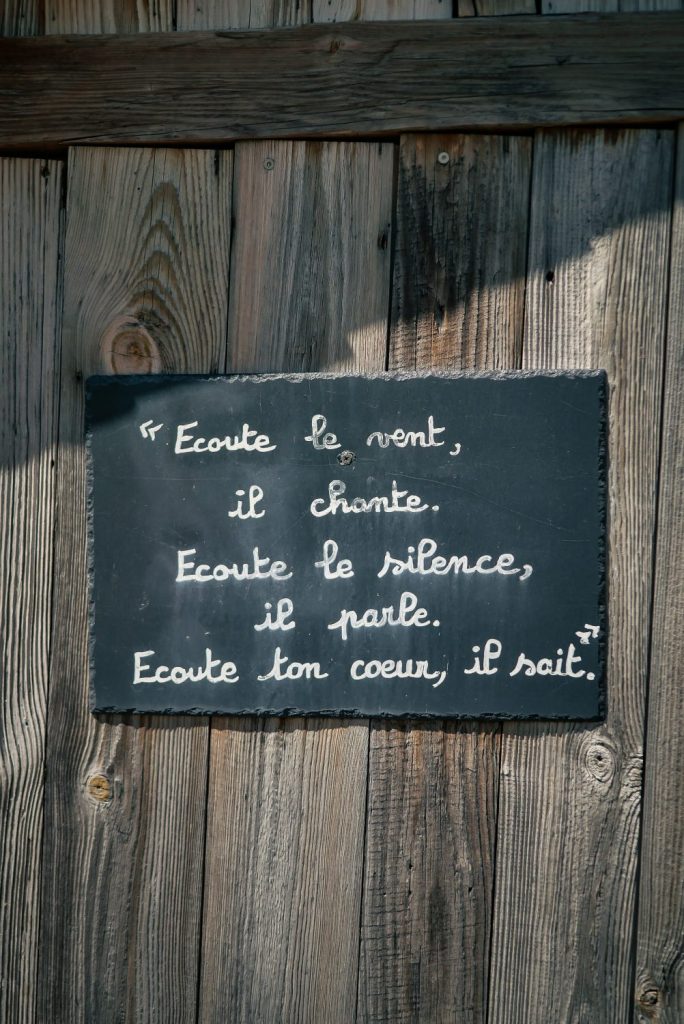 « Ecoute le vent,
il chante.
Ecoute le silence,
il parle.
Ecoute ton coeur, il sait. »